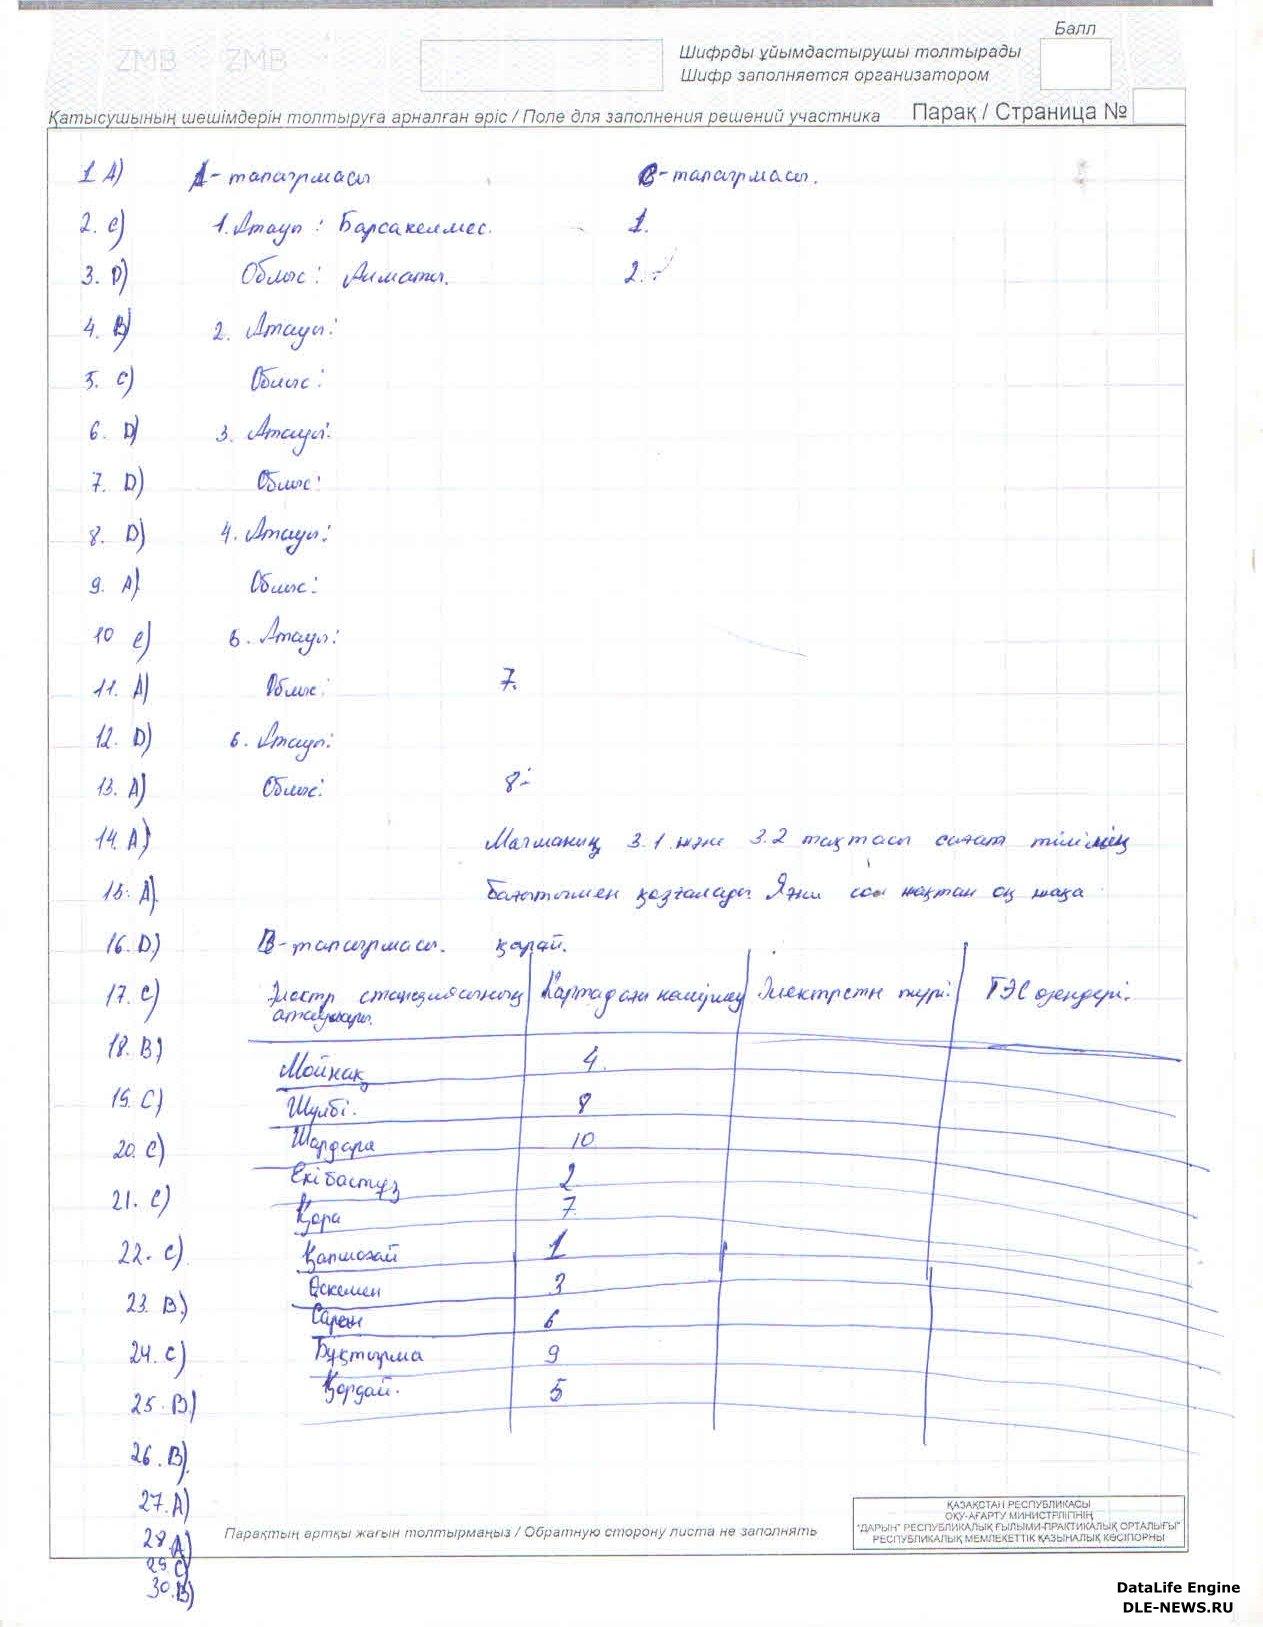 ZMB ZMB
Балл
Шифрды ұйымдастырушы толтырады
Шифр заполняется организатором
Қатысушының шешімдерін толтыруға арналған өріс / Поле для заполнения решений участника
Парақ / Страница №
1 А)
А-тапсырмасы
С-тапсырмасы.
2. С)
1. Атауы: Барсакелмес.
1.
3. D)
Облыс: Алматы.
2. -
4. В)
2. Атауы:
5. С)
Облыс:
6. D)
3. Атауы:
7. D)
Облыс:
8. D)
4. Атауы:
9. А)
Облыс:
10 С)
5. Атауы:
11. А)
Облыс:
7.
12. D)
6. Атауы:
13. А)
Облыс:
8-
14. А)
Магманың 3.1 және 3.2 тақтасы сағат тілінің
15. А)
бағытымен қозғалады. Яғни сол жақтан оң жаққа
16. D)
В-тапсырмасы.
қарай.
17. С)
Электр станциясының атаулары.
Картадағы нөмірлеу
Электрстн түрі:
ГЭС өзендері.
18. В)
Мойнақ 4.
19. С)
Шүлбі. 8
20. С)
Шардара 10
Екібастұз 2
21. С)
Қора 7
22. С)
Қапшағай 1
Өскемен 3
23. В)
Сарең 6
24. С)
Бұқтырма 9
25. В)
Қордай. 5
26. В)
27. А)
28 А)
29 С)
30. В)
Парақтың артқы жағын толтырмаңыз / Обратную сторону листа не заполнять
ҚАЗАҚСТАН РЕСПУБЛИКАСЫ
ОҚУ-АҒАРТУ МИНИСТРЛІГІНІҢ
"ДАРЫН" РЕСПУБЛИКАЛЫҚ ҒЫЛЫМИ-ПРАКТИКАЛЫҚ ОРТАЛЫҒЫ"
РЕСПУБЛИКАЛЫҚ МЕМЛЕКЕТТІК ҚАЗЫНАЛЫҚ КӘСІПОРНЫ
DataLife Engine
DLE-NEWS.RU